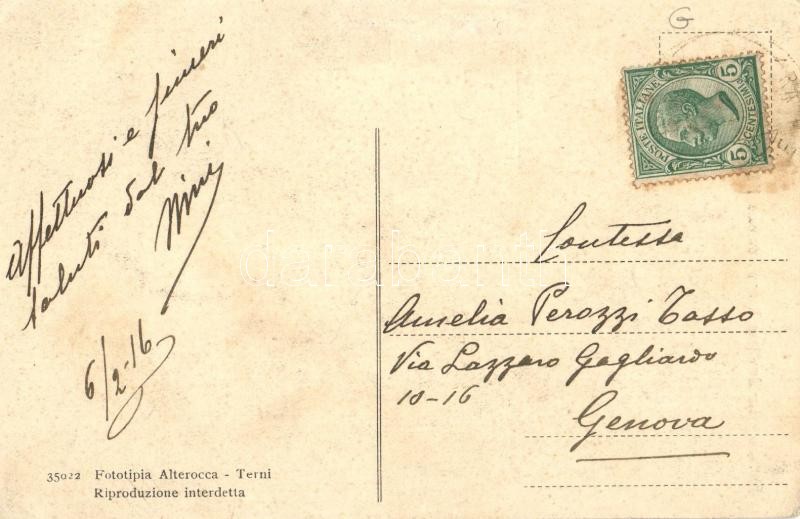 Affettuosi e sinceri
saluti dal tuo
Nini
6/2-16
35022 Fototipia Alterocca - Terni
Riproduzione interdetta
G
POSTE ITALIANE
5 CENTESIMI 5
Contessa
Amelia Perozzi Tasso
Via Lazzaro Gagliardo
10-16
Genova
darabanth